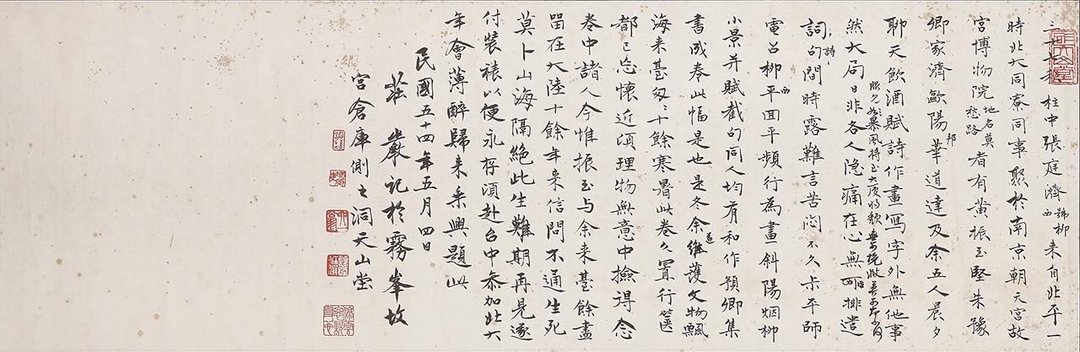 柱中張庭濟號柳西来自北平一
時北大同寮同事聚於南京朝天宮故
宮博物院地名莫愁路者有黃振玉堅朱豫
卿家濟歐陽邦華道達及余五人晨夕
聊天飲酒賦詩作畫寫字外無他事
然大局日非各人隱痛在心無所排遣
詩詞句間時露難言苦悶不久平師
電召柳西回平頻行為畫斜陽烟柳
小景并賦截句同人均有和作預卿集
書成奉此幅是也是冬余道維護文物飄
海来臺匆匆十餘寒暑此卷久置行篋
都已忘懷近頃理物無意中撿得念
卷中諸人今惟振玉与余来臺餘盡
留在大陸十餘年来信問不通生死
莫卜山海隔絕此生難期再見遂
付裝裱以便永存頃赴台中参加北大
年會薄醉歸来乘興題此
民國五十四年五月四日
莊嚴記於霧峯故
宮倉庫側之洞天山堂